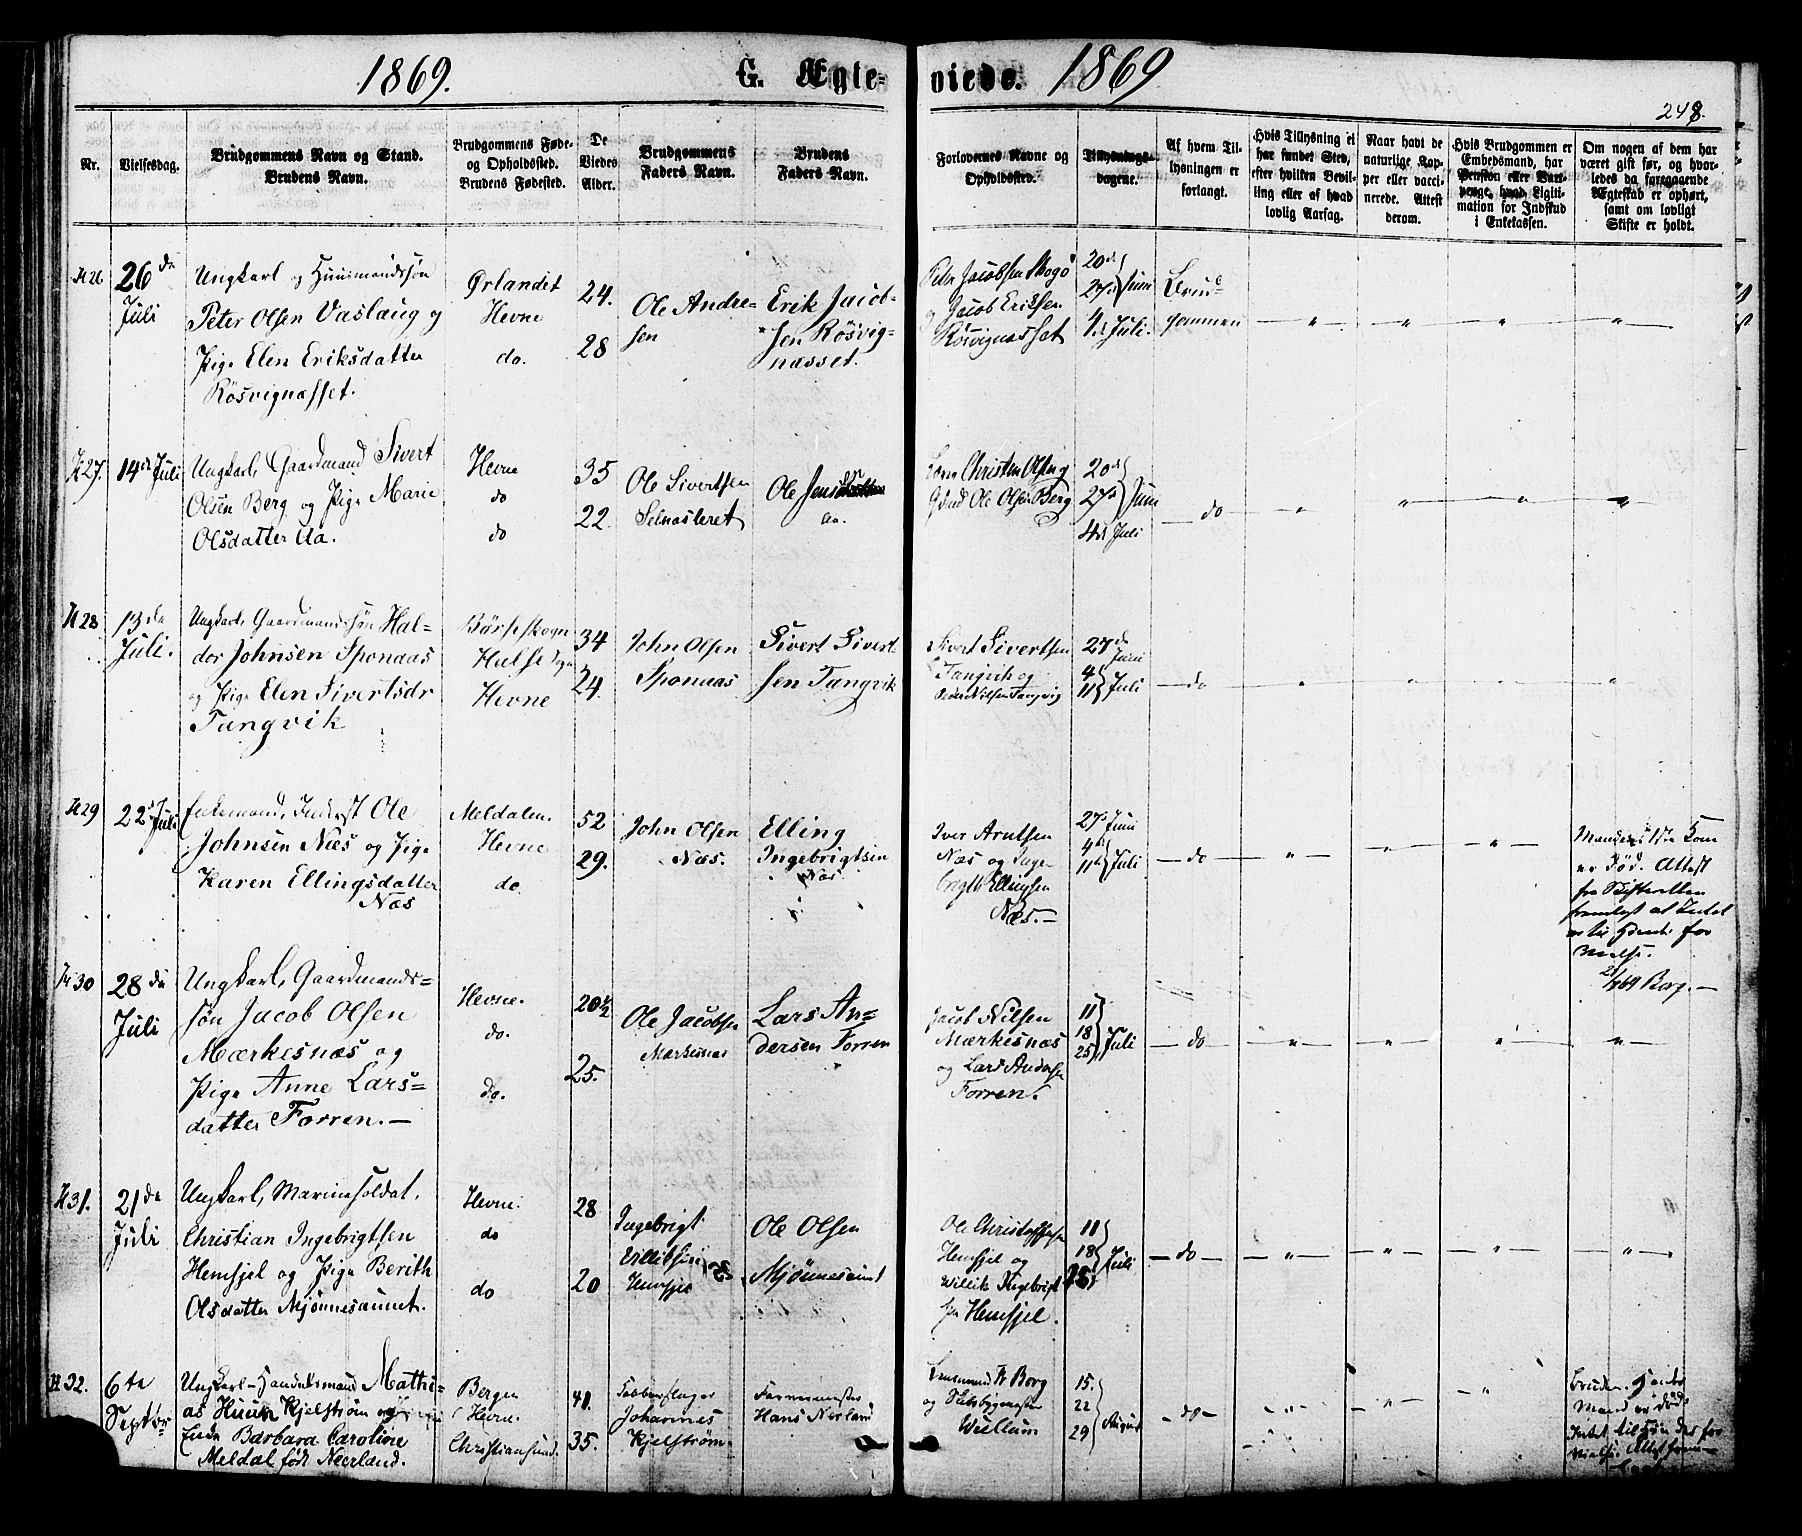 1869. G. Ægte-
viede. 1869
248.
Nr.
Vielsesdag.
Brudgommens Navn og Stand.
Brudens Navn.
Brudgommens Føde-
og Opholdssted.
Brudens Fødested.
De
Viedes
Alder.
Brudgommens
Faders Navn.
Brudens
Faders Navn.
Forlovernes Navne og
Opholdssted.
Tillysnings-
dagene.
Af hvem Til-
lysningen er
forlangt.
Hvis Tillysning ei
har fundet Sted,
efter hvilken Bevil-
ling eller af hvad
lovlig Aarsag.
Naar havt de
naturlige Kop-
per eller vacci-
nerede. Attest
derom.
Hvis Brudgommen er
Embedsmand, har
Pension eller Vart-
penge, hvad Ligiti-
mation for Indskud
i Enkekassen.
Om nogen af dem har
været gift før, og hvor-
ledes da foregaaende
Ægteskab er ophørt,
samt om lovligt
Skifte er holdt.
N 26
26de
Juli
Ungkarl og Huusmandssøn
Peter Olsen Vaslaug og
Pige Elen Eriksdatter
Rösvignæsset.
Ørlandet
Hevne
do.
24.
28
Ole Andre-
sen
Erik Jacob-
sen Rösvig-
næsset.
Peter Jacobsen Skogö
og Jacob Eriksen
Rösvignæsset
20de
27de Juni
4de Juli.
Brud-
gommen
N 27.
14de Juli
Ungkarl, Gaardmand Sivert
Olsen Berg og Pige Marie
Olsdatter Aa.
Hevne
do
do
35
22.
Ole Sivertsen
Selnæsleret
Ole Jensen
Aa.
Christen Olsen og
Gbrd Ole Olsen Berg
20de
27de Juni
4de Juli
do
N 28
13de
Juli.
Ungkarl, Gaardmandssøn Hal-
dor Johnsen Sponaas
og Pige Elen Sivertsdr
Tangvik
Börseskogn
Halse Sogn
Hevne
34
24.
John Olsen
Sponaas
Sivert Sivert-
sen Tangvik
Sivert Sivertsen
Tangvik og
Nilsen Tangvig
27de Juni
4
11 Juli
do
N 29
22de Juli
Enkemand, Inderst Ole
Johnsen Næs og Pige
Karen Ellingsdatter
Næs
Meldalen.
Hevne
do
52
29.
John Olsen
Næs.
Elling
Ingebrigtsen
Næs.
Iver Arntsen
Næs og Inge-
brigt Ellingsen
Næs.
27de Juni
4de
11te Juli
do
Mandens 1ste Kone
er död. Attest
fra Skifteretten
fremlagt at Intet
er til Hinder for
Vielse.
Borg.
N 30
28de
Juli
Ungkarl, Gaardmands-
søn Jacob Olsen
Mærkesnæs og
Pige Anne Lars-
datter Forren.
Hevne.
do.
do.
20 1/2
25.
Ole Jacobsen
Mærkesnæs
Lars An-
dersen Forren
Jacob Nilsen
Mærkesnæs
og Lars Andersen
Forren.
11
18
25 Juli
do
N 31.
21de
Juli
Ungkarl, Marinesoldat,
Christian Ingebrigtsen
Hemsjel og Pige Berith
Olsdatter Mjönnesaunet.
Hevne.
do
do
28
20
Ingebrigt
Hemsjel
Ole Olsen
Mjönnesaunet
Ole Christoffersen
Hemsjel og
Willik Ingebrigt-
sen Hemsjel.
11
18
25 Juli
do
N 32.
6te
Septbr
Ungkarl, Handelsmand Mathi-
as Huun Kjelström og
Enke Barbara Caroline
Meldal född Neerland.
Bergen
Hevne.
Christiansund.
41.
35.
Johannes
Kjelström
Hans Neerland
Lensmand Borg
og
Wullum
15.
22
29 August
do
Bruden. Hendes
Mand er död.
Intet til Hinder for
Vielse.